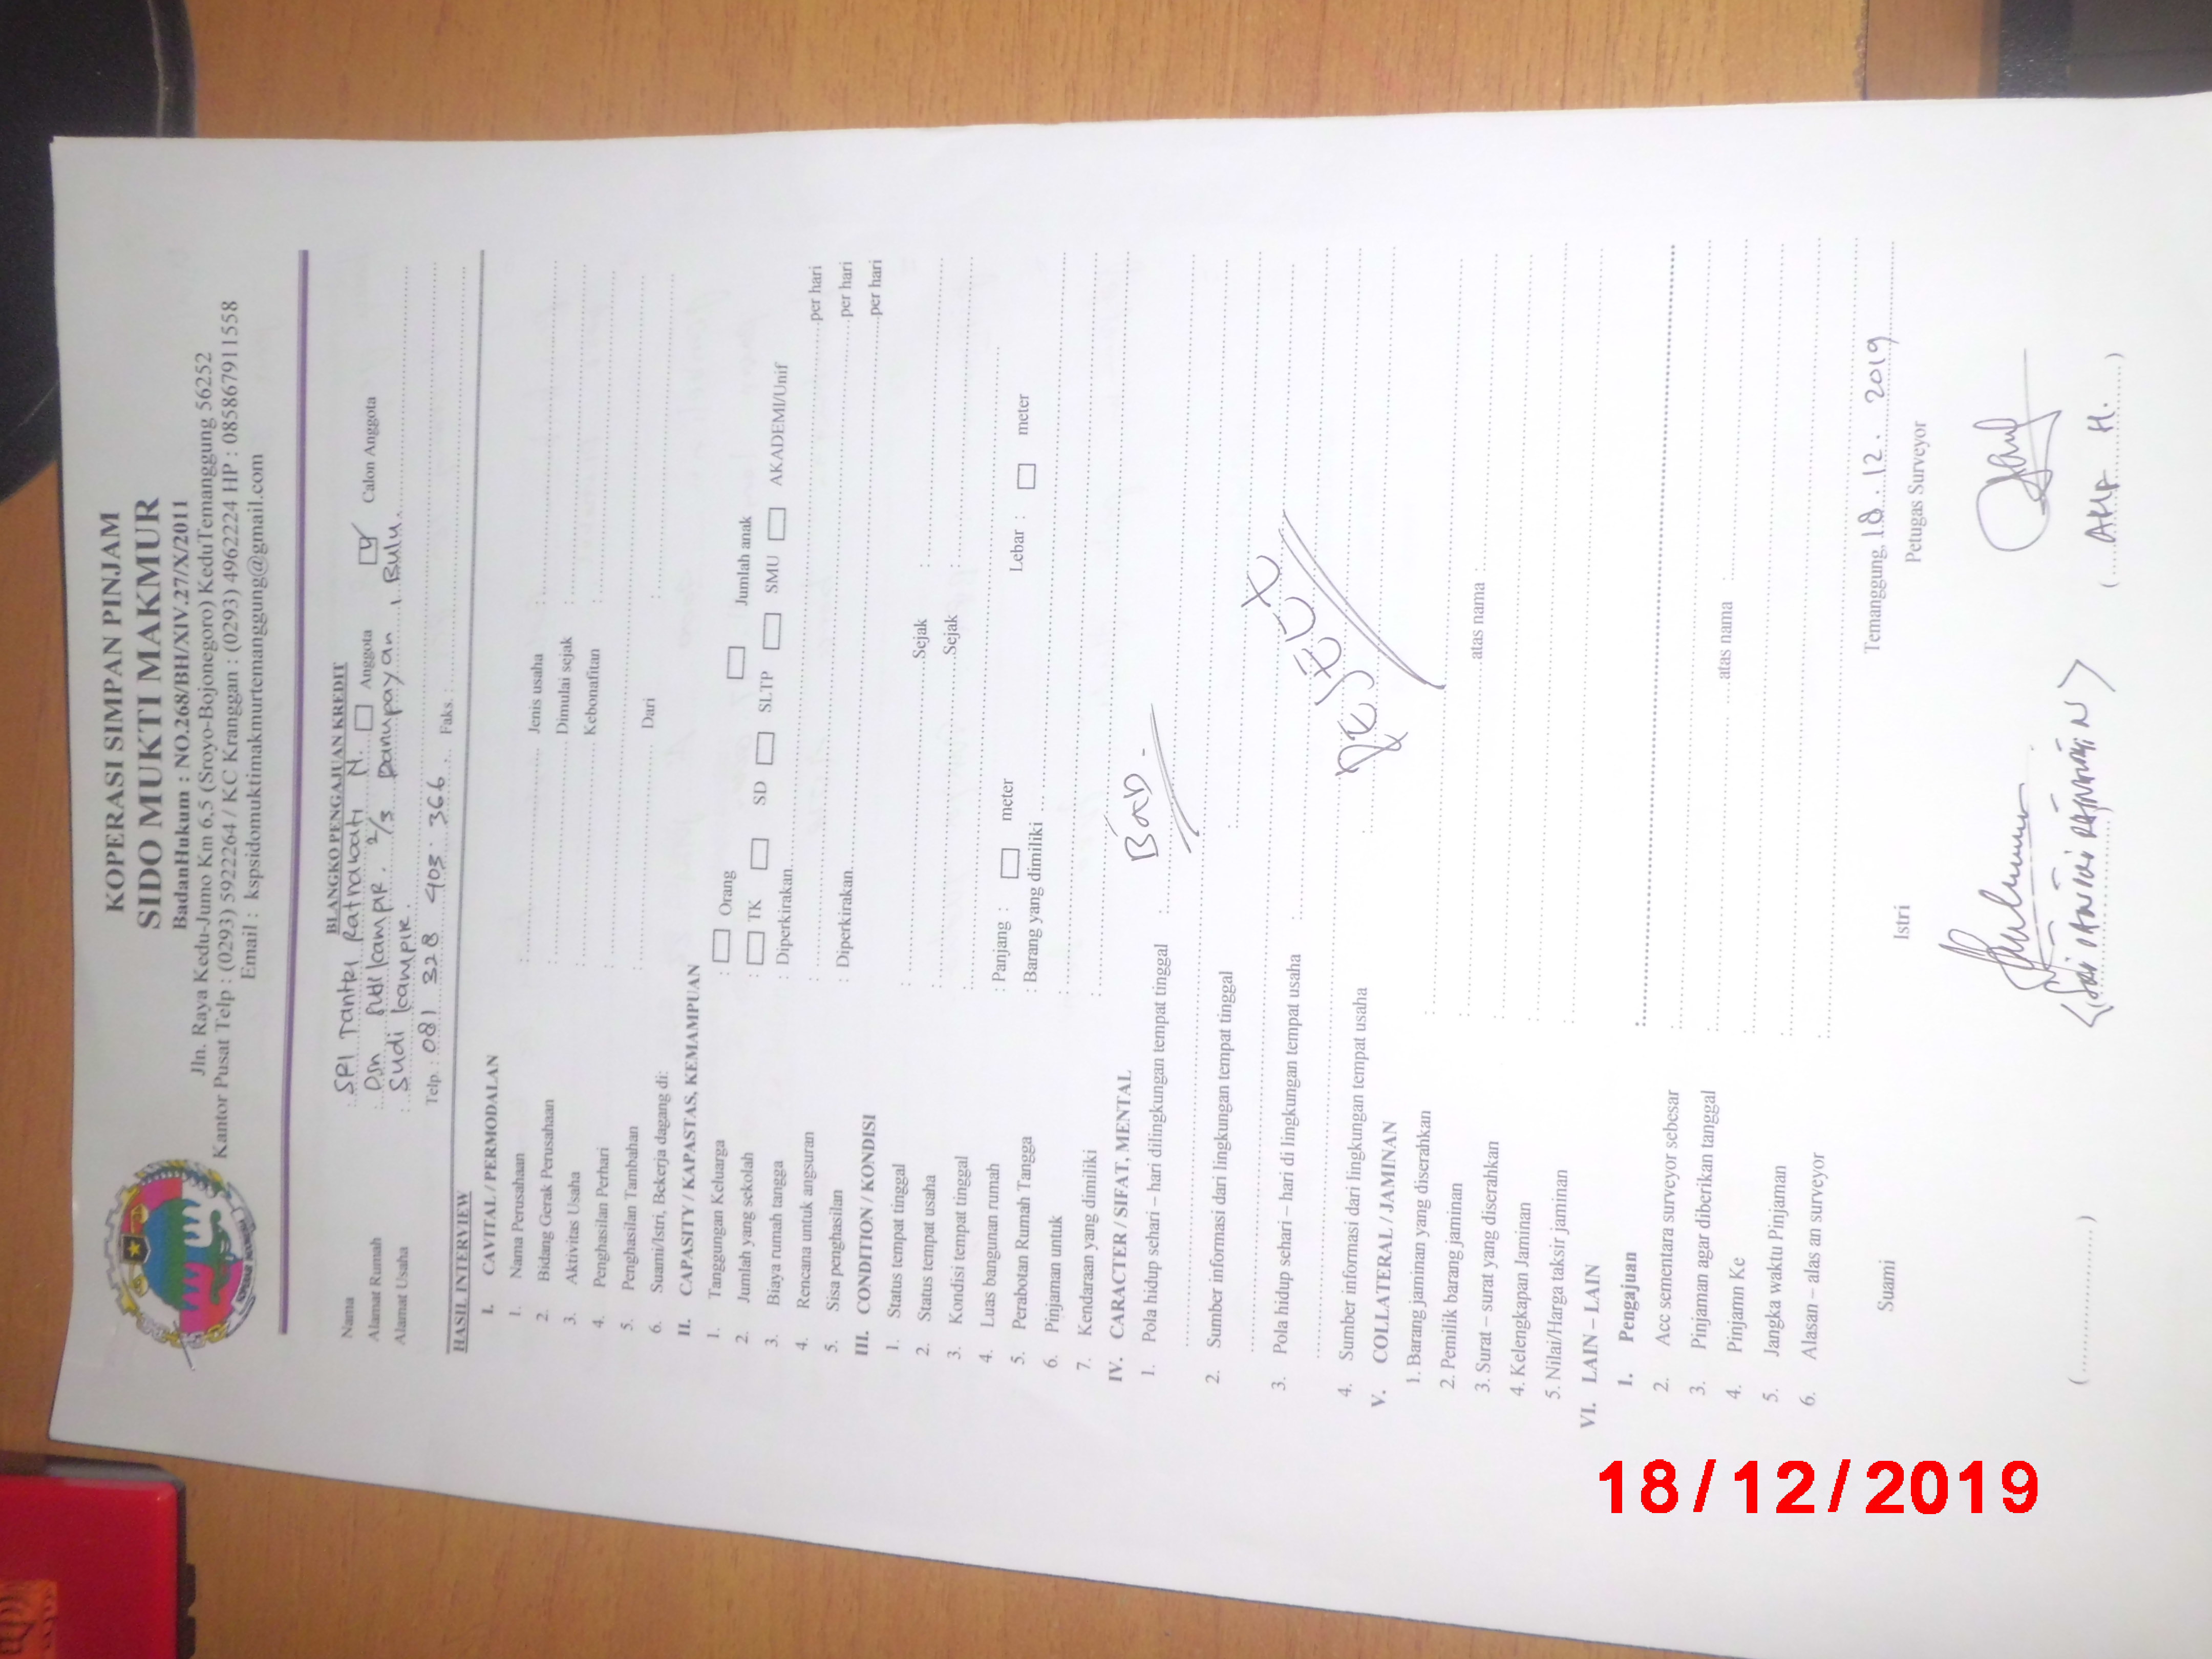 KOPERASI SIMPAN PINJAM
SIDO MUKTI MAKMUR
BadanHukum : NO.268/BH/XIV.27/X/2011
Jln. Raya Kedu-Jumo Km 6,5 (Sroyo-Bojonegoro) KeduTemanggung 56252
Kantor Pusat Telp : (0293) 5922264 / KC Kranggan : (0293) 4962224 HP : 085867911558
Email : kspsidomuktimakmurtemanggung@gmail.com
BLANGKO PENGAJUAN KREDIT
Nama : SRI Tantri Ratnawati N. Anggota Calon Anggota
Alamat Rumah : Dsn 2/3 , Bulu.
Alamat Usaha :
Telp. : 081 328 403 366 Faks. :
HASIL INTERVIEW
I. CAVITAL / PERMODALAN
1. Nama Perusahaan : Jenis usaha :
2. Bidang Gerak Perusahaan : Dimulai sejak :
3. Aktivitas Usaha : Kebonafitan :
4. Penghasilan Perhari :
5. Penghasilan Tambahan : Dari :
6. Suami/Istri, Bekerja dagang di:
II. CAPASITY / KAPASTAS, KEMAMPUAN
1. Tanggungan Keluarga : Orang Jumlah anak
2. Jumlah yang sekolah : TK SD SLTP SMU AKADEMI/Unif
3. Biaya rumah tangga : Diperkirakan per hari
4. Rencana untuk angsuran : per hari
5. Sisa penghasilan : Diperkirakan per hari
III. CONDITION / KONDISI
1. Status tempat tinggal : Sejak :
2. Status tempat usaha : Sejak :
3. Kondisi tempat tinggal :
4. Luas bangunan rumah : Panjang : meter Lebar : meter
5. Perabotan Rumah Tangga : Barang yang dimiliki
6. Pinjaman untuk :
7. Kendaraan yang dimiliki :
IV. CARACTER / SIFAT, MENTAL
1. Pola hidup sehari – hari dilingkungan tempat tinggal :
2. Sumber informasi dari lingkungan tempat tinggal :
3. Pola hidup sehari – hari di lingkungan tempat usaha :
4. Sumber informasi dari lingkungan tempat usaha :
V. COLLATERAL / JAMINAN
1. Barang jaminan yang diserahkan :
2. Pemilik barang jaminan :
3. Surat – surat yang diserahkan : atas nama :
4. Kelengkapan Jaminan :
5. Nilai/Harga taksir jaminan :
VI. LAIN – LAIN
1. Pengajuan :
2. Acc sementara surveyor sebesar :
3. Pinjaman agar diberikan tanggal : atas nama :
4. Pinjamn Ke :
5. Jangka waktu Pinjaman :
6. Alasan – alas an surveyor :
Temanggung, 18 . 12 . 2019
Suami Istri Petugas Surveyor
18/12/2019